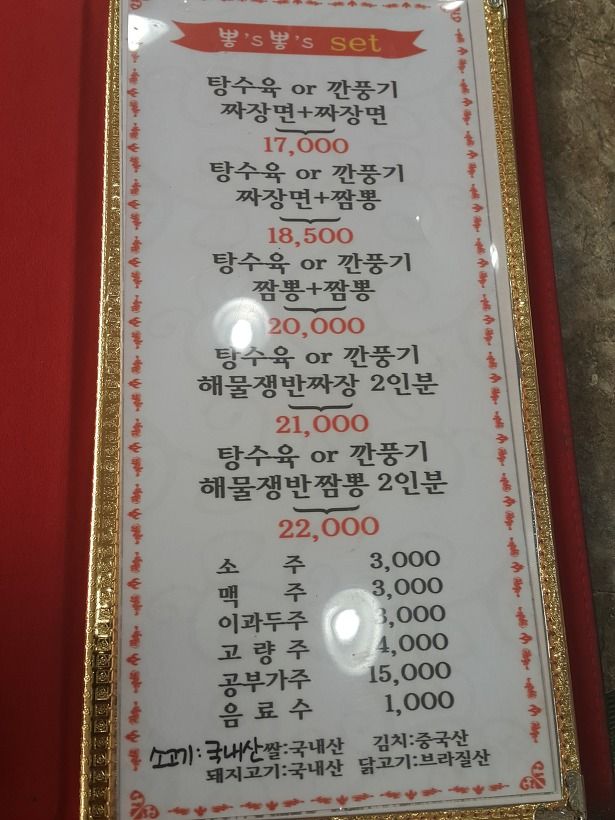 뽕's뽕's set
탕수육 or 깐풍기
짜장면+짜장면
17,000
탕수육 or 깐풍기
짜장면+짬뽕
18,500
탕수육 or 깐풍기
짬뽕+짬뽕
20,000
탕수육 or 깐풍기
해물쟁반짜장 2인분
21,000
탕수육 or 깐풍기
해물쟁반짬뽕 2인분
22,000
소 주 3,000
맥 주 3,000
이과두주 3,000
고 량 주 4,000
공부가주 15,000
음 료 수 1,000
소고기:국내산 쌀:국내산 김치:중국산
돼지고기:국내산 닭고기:브라질산